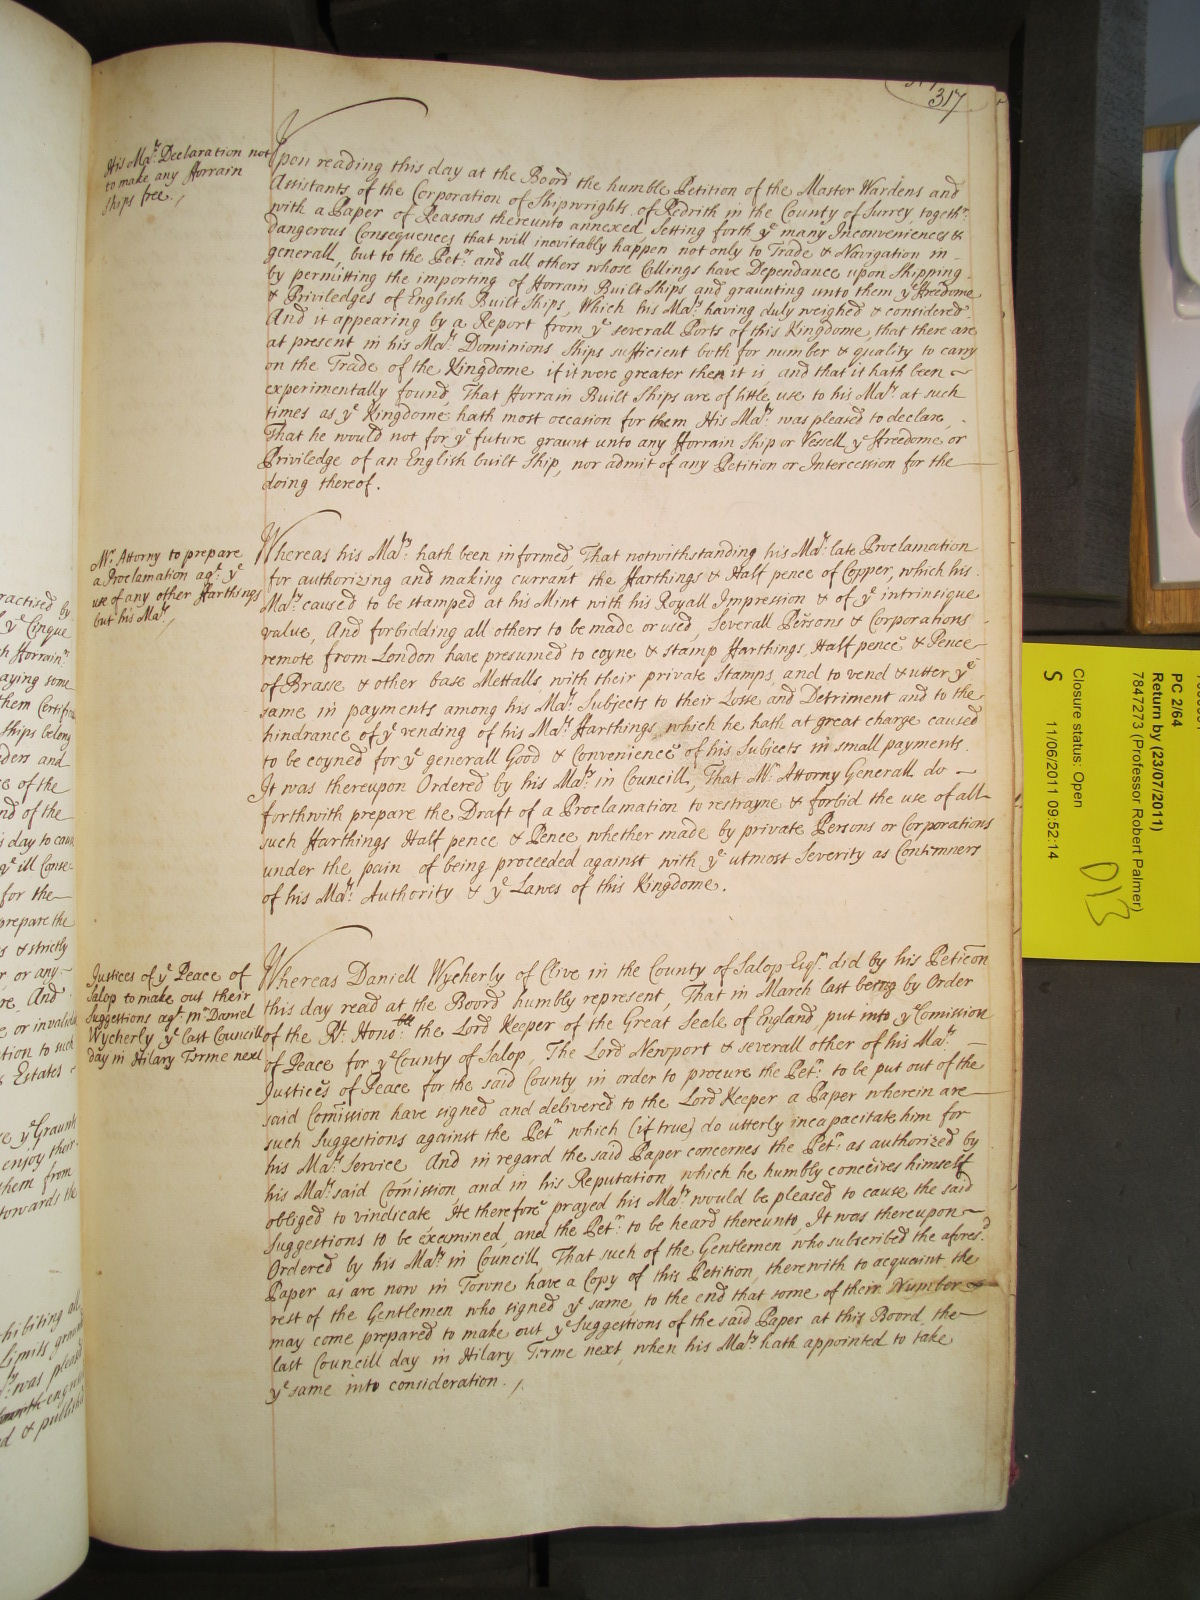 317
His Maty: Declaration not
to make any fforrain
Ships free./
Upon reading this day at the Board the humble Petition of the Master Wardens and
Assistants of the Corporation of Shipwrights of Redrith in the County of Surrey, togethr:
with a Paper of Reasons thereunto annexed, Setting forth ye many Inconveniences &
dangerous Consequences that will inevitably happen not only to Trade & Navigation in
generall, but to the Petrs: and all others whose Callings have Dependance upon Shipping
by permitting the importing of fforrain Built Ships and graunting unto them ye ffreedome
& Priviledges of English Built Ships, Which his Maty: having duly weighed & considered
And it appearing by a Report from ye severall Ports of this Kingdome, that there are
at present in his Mats: Dominions Ships sufficient both for number & quality to carry
on the Trade of the Kingdome if it were greater then it is, and that it hath been
experimentally found, That fforrain Built Ships are of little use to his Maty: at such
times as ye Kingdome hath most occasion for them His Maty: was pleased to declare,
That he would not for ye future graunt unto any fforrain Ship or Vessell ye ffreedome or
Priviledge of an English built Ship, nor admit of any Petition or Intercession for the
doing thereof.
Mr. Attorny to prepare
a Proclamation agt. ye
use of any other ffarthings
but his Mats:/
Whereas his Maty: hath been informed, That notwithstanding his Mats: late Proclamation
for authorizing and making currant the ffarthings & Half pence of Copper, which his
Maty: caused to be stamped at his Mint with his Royall Impression & of ye intrinsique
value, And forbidding all others to be made or used, Severall Persons & Corporations
remote from London have presumed to coyne & stamp ffarthings, Half pence & Pence
of Brasse & other base Mettalls with their private Stamps, and to vend & utter ye
same in payments among his Mats: Subjects to their Losse and Detriment and to the
hindrance of ye vending of his Mats: ffarthings, which he hath at great charge caused
to be coyned for ye generall Good & Convenience of his Subjects in small payments.
It was thereupon Ordered by his Maty: in Councill, That Mr. Attorny Generall do
forthwith prepare the Draft of a Proclamation to restrayne & forbid the use of all
such ffarthings Half pence & Pence whether made by private Persons or Corporations
under the pain of being proceeded against with ye utmost Severity as Contemners
of his Mats: Authority & ye Lawes of this Kingdome.
Justices of ye Peace of
Salop to make out their
Suggestions agt. mr Daniel
Wycherly ye last Councill
day in Hilary Terme next
Whereas Daniell Wycherly of Clive in the County of Salop Esqr. did by his Peticōn
this day read at the Board humbly represent, That in March last being by Order
of the Rt. Honoble the Lord Keeper of the Great Seale of England, put into ye Comission
of Peace for ye County of Salop, The Lord Newport & severall other of his Mats:
Justices of Peace for the said County in order to procure the Petr: to be put out of the
said Comission have signed and delivered to the Lord Keeper a Paper wherein are
such Suggestions against the Petr which (if true) do utterly incapacitate him for
his Mats: Service And in regard the said Paper concernes the Petr: as authorized by
his Mats: said Comission, and in his Reputation, which he humbly conceives himself
obliged to vindicate, He therefore prayed his Maty: would be pleased to cause the said
Suggestions to be examined, and the Petr: to be heard thereunto, It was thereupon
Ordered by his Maty: in Councill, That such of the Gentlemen who subscribed the aforesd.
Paper as are now in Towne have a Copy of this Petition, therewith to acquaint the
rest of the Gentlemen who signed ye same, to the end that some of their Number
may come prepared to make out ye Suggestions of the said Paper at this Board, the
last Councill day in Hilary Terme next, when his Maty: hath appointed to take
ye same into consideration./
PC 2/64
Return by (23/07/2011)
7847273 (Professor Robert Palmer)
Closure status: Open
S 11/06/2011 09:52:14
D13